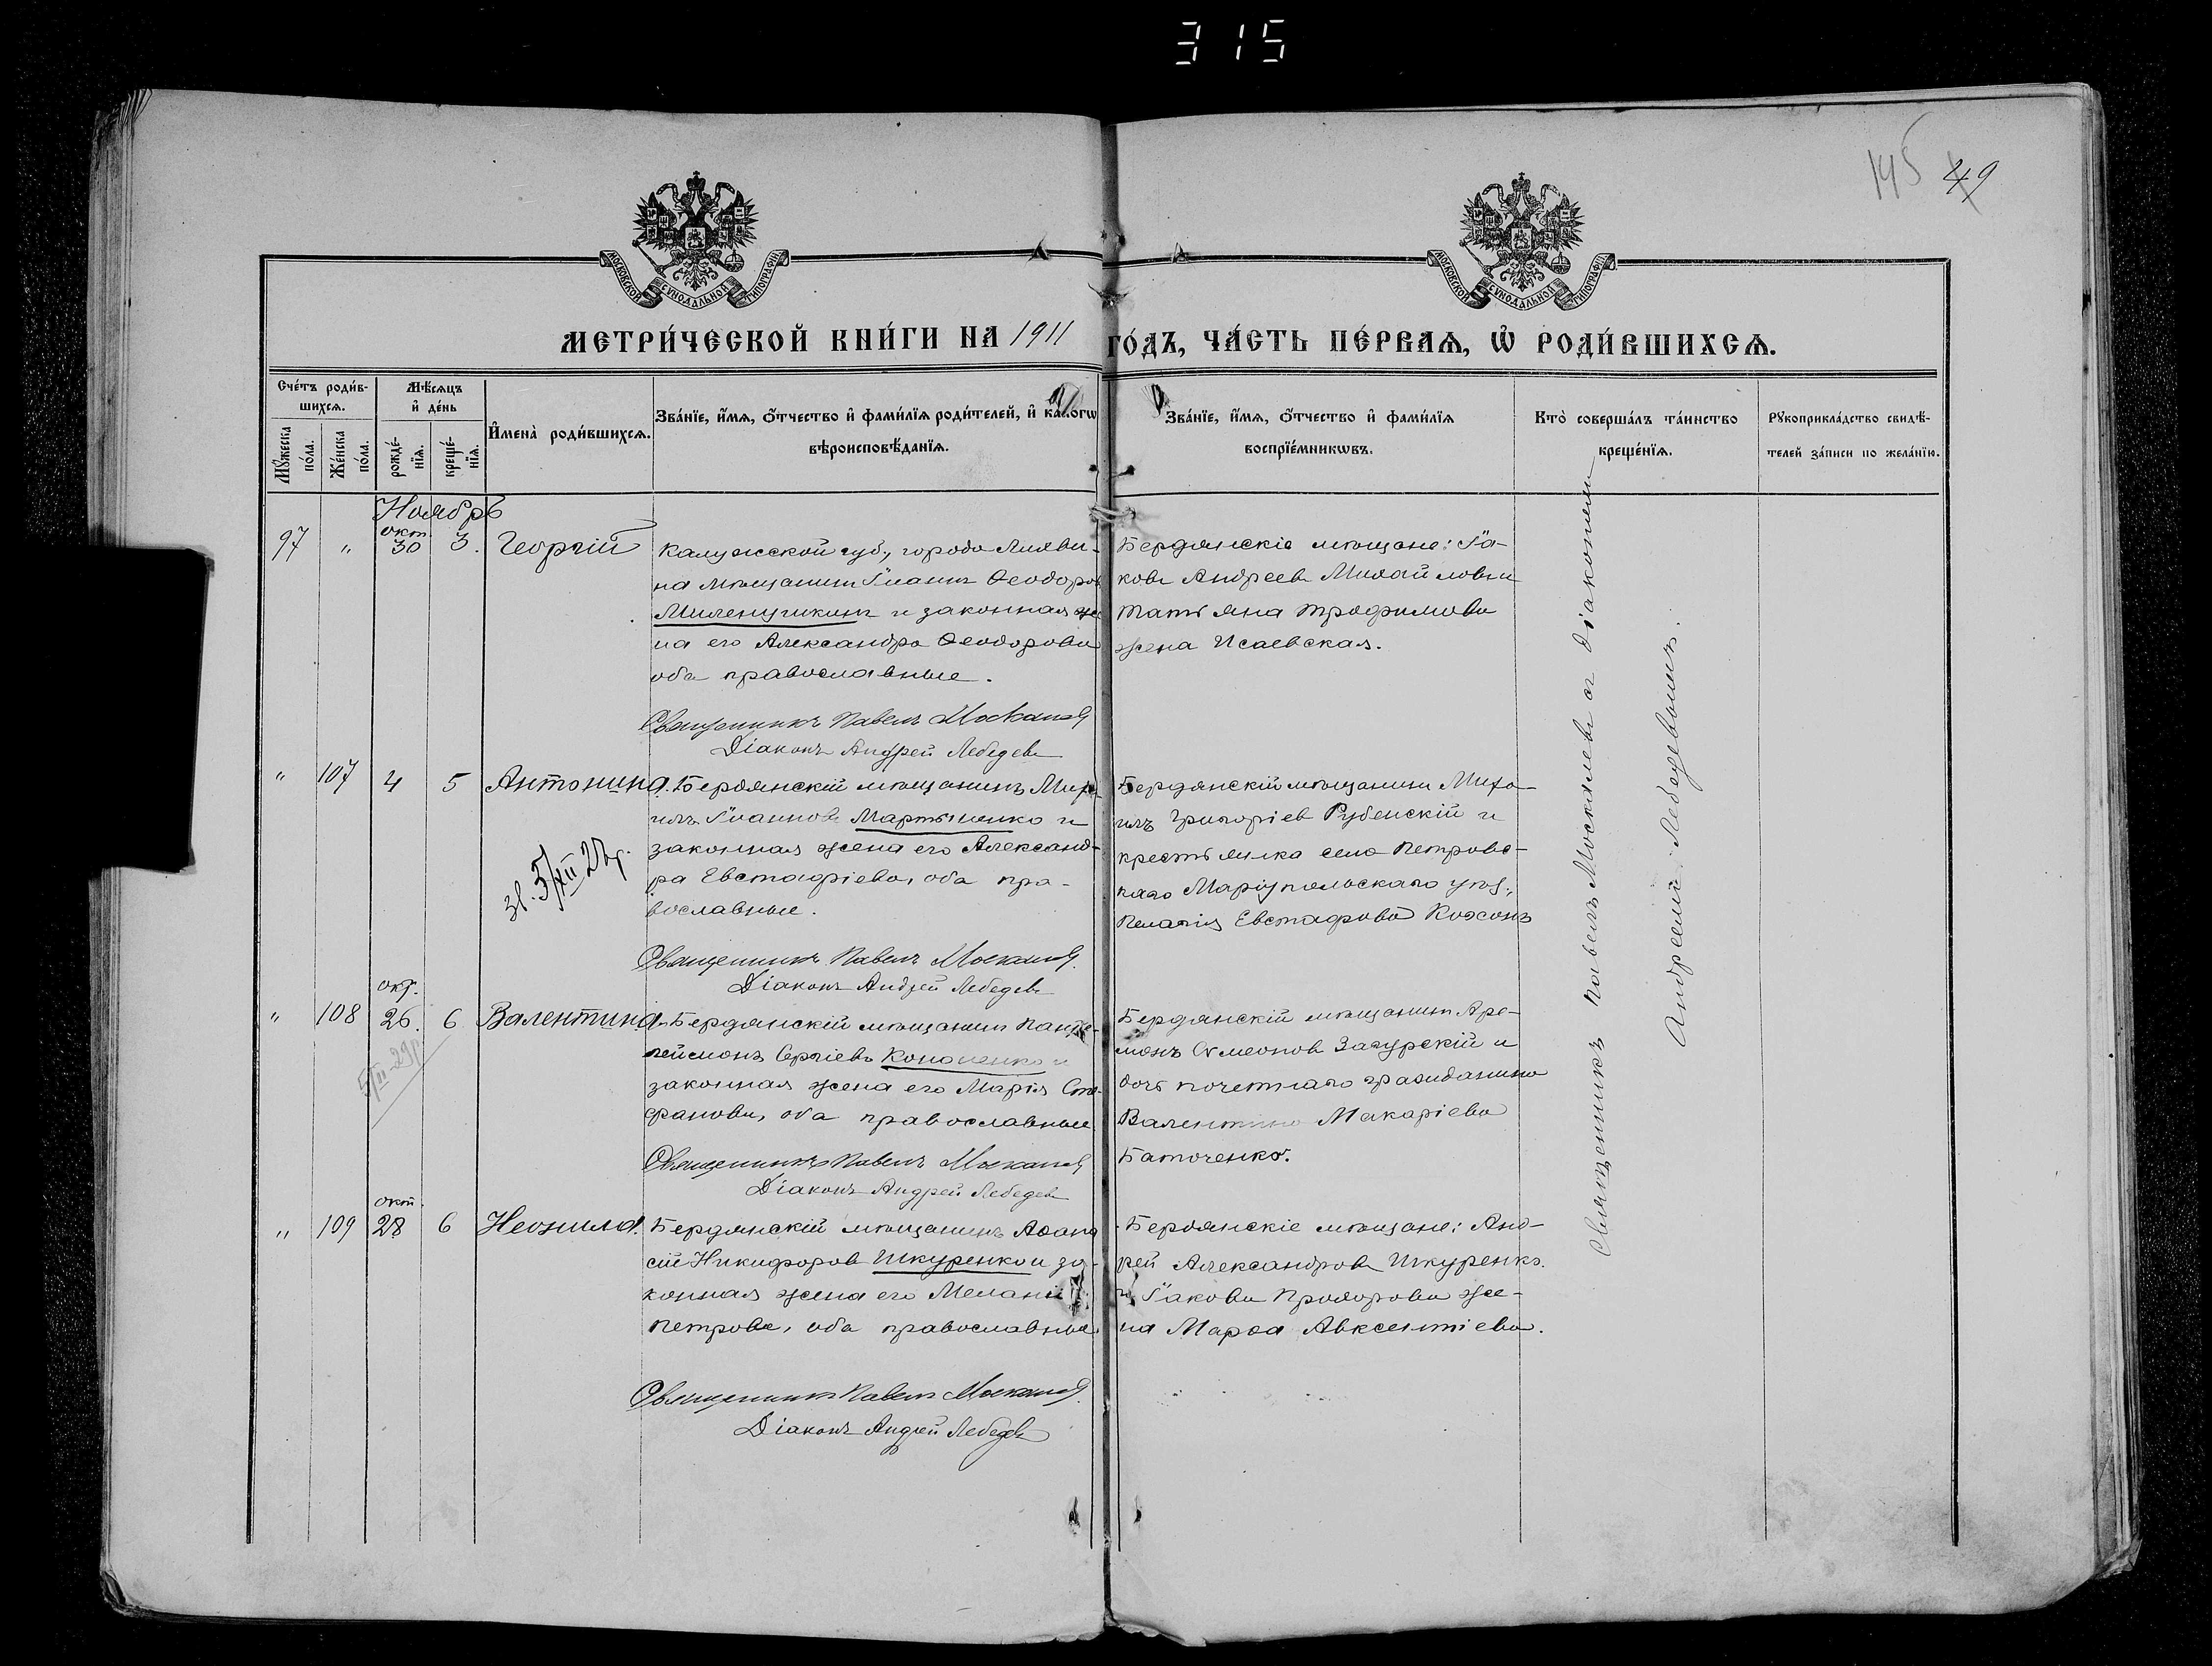 315
145 49
МОСКОВСКОЙ СѴНОДАЛЬНОЙ ТИПОГРАФІИ
МОСКОВСКОЙ СѴНОДАЛЬНОЙ ТИПОГРАФІИ
МЕТРИ́ЧЕСКОЙ КНИ́ГИ НА 1911 ГО́ДЪ, ЧА́СТЬ ПЕ́РВАѦ, Ѡ РОДИ́ВШИХСѦ.
Сче́тъ роди́в-
шихсѧ.
Мꙋжеска по́ла.
Же́нска по́ла.
Мѣ́сѧцъ
и҆ де́нь
рожде́-
нїѧ.
креще́-
нїѧ.
И҆мена̀ роди́вшихсѧ.
Зва́нїе, и҆́мѧ, ѻ҆́тчество и҆ фами́лїѧ роди́телей, и҆ како́гѡ
вѣроисповѣ́данїѧ.
Зва́нїе, и҆́мѧ, ѻ҆́тчество и҆ фами́лїѧ
воспрїе́мникѡвъ.
Кто̀ соверша́лъ та́инство
креще́нїѧ.
Рꙋкоприкла́дство свидѣ́-
телей за́писи по жела́нїю.
Ноябрь
97 " окт. 30 3. Георгій
Калужской губ., города
на мѣщанинъ Іоаннъ Ѳеодоров
и законная же
на его Александра Ѳеодорова
оба православные.
Священникъ Павелъ Москалев
Діаконъ Андрей Лебедевъ
Бердянскіе мѣщане: Іа-
ковъ Андреевъ Михайловъ и
Татьяна Трофимова
жена Исаевская.
" 107 4 5 Антонина.
Бердянскій мѣщанинъ Миха-
илъ Іоанновъ Мартыненко и
законная жена его Александ-
ра Евстафіева, оба пра-
вославные.
Священникъ Павелъ Москалев
Діаконъ Андрей Лебедевъ
Бердянскій мѣщанинъ Миха-
илъ Григоріев Рубенскій и
крестьянка села Петровс-
каго Маріупольскаго уѣз.,
Пелагія Евстафова
" 108 окт. 26. 6 Валентина
Бердянскій мѣщанинъ Панте-
леймонъ Сергіевъ Кононенко и
законная жена его Марія Сте-
фанова, оба православные
Священникъ Павелъ Москалев
Діаконъ Андрей Лебедевъ
Бердянскій мѣщанинъ
Симеонов Загурскій и
дочь почетнаго гражданина
Валентина Макаріева
" 109 окт. 28 6 Неонила.
Бердянскій мѣщанинъ Аѳана
сій Никифоров Шкуренко и за-
конная жена его Меланія
Петрова, оба православные
Священникъ Павелъ Москалев
Діаконъ Андрей Лебедевъ
Бердянскіе мѣщане: Анд-
рей Александров Шкуренко
и Іакова Прохорова же-
на Марѳа Авксентіева.
Священникъ Павелъ Москалевъ с діакономъ
Андреемъ Лебедевымъ.